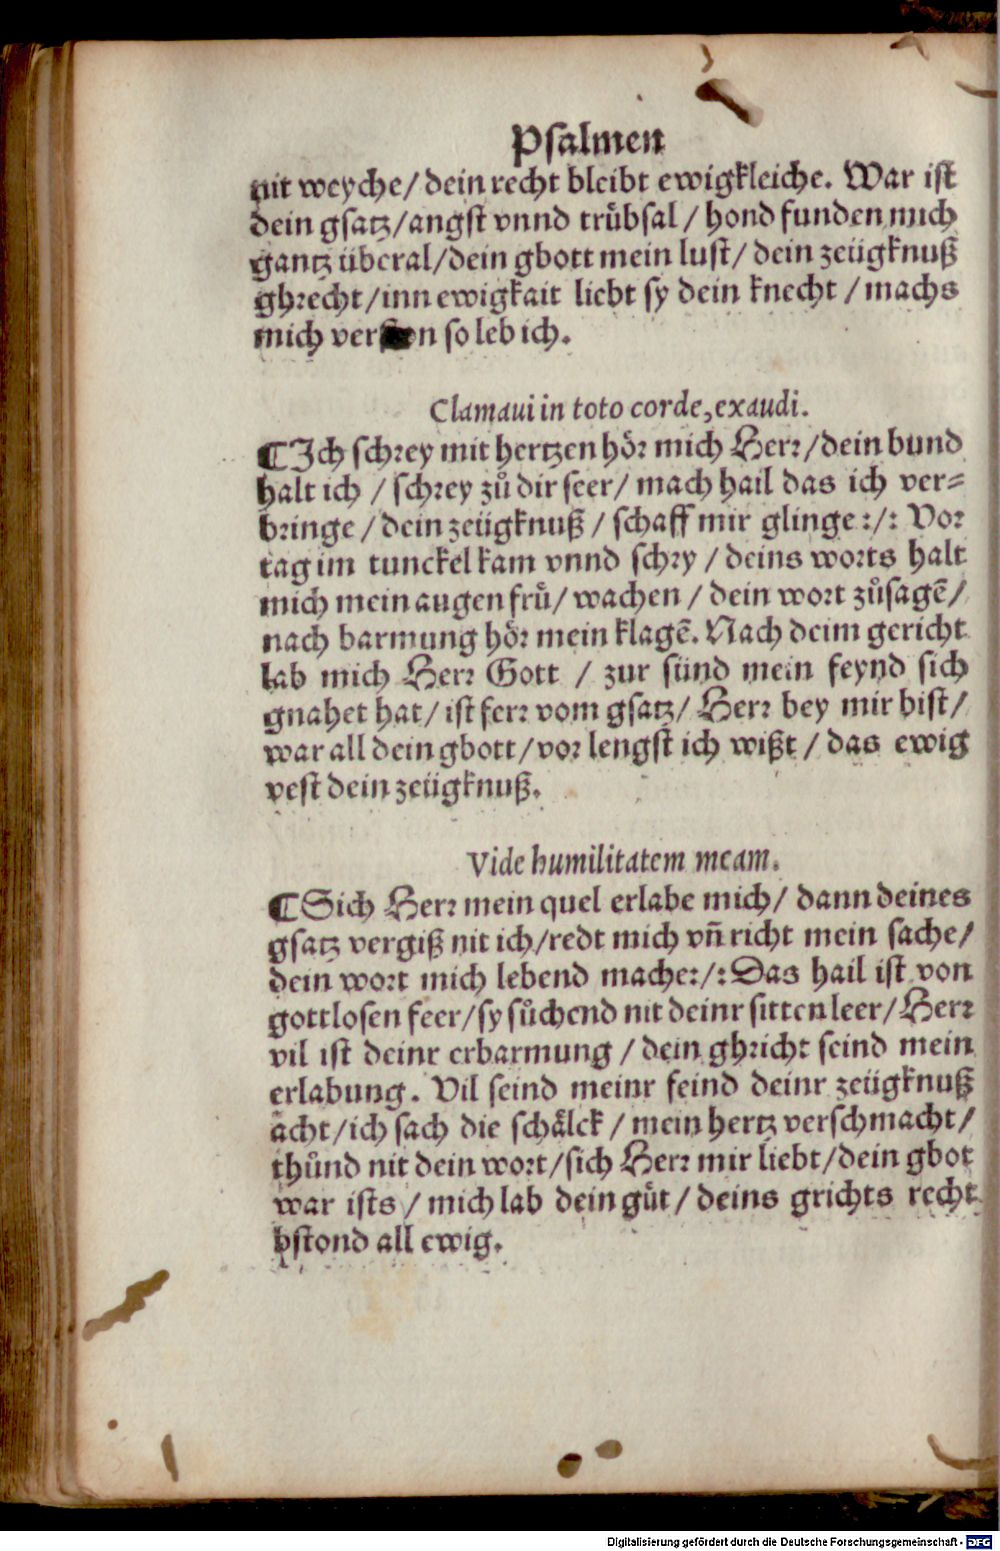 Psalmen
nit weyche/ dein recht bleibt ewigkleiche. War ist
dein gsatz/angst vnnd trůbsal / hond funden mich
gantz überal/dein gbott mein lust/ dein zeügknuß
ghrecht/inn ewigkait liebt sy dein knecht / machs
mich so leb ich.
Clamaui in toto corde, exaudi.
¶Ich schrey mit hertzen hör mich Herr/dein bund
halt ich / schrey zů dir seer/ mach hail das ich ver=
bringe / dein zeügknuß / schaff mir glinge :/: Vor
tag im tunckel kam vnnd schry / deins worts halt
mich mein augen frů/ wachen / dein wort zůsagē/
nach barmung hör mein klagē. Nach deim gericht
lab mich Herr Gott / zur sünd mein feynd sich
gnahet hat/ ist ferr vom gsatz/ Herr bey mir bist/
war all dein gbott/vor lengst ich wißt / das ewig
vest dein zeügknuß.
Vide humilitatem meam.
¶Sich Herr mein quel erlabe mich/ dann deines
gsatz vergiß nit ich/redt mich vñ richt mein sache/
dein wort mich lebend mache:/: Das hail ist von
gottlosen feer/sy sůchend nit deinr sitten leer/Herr
vil ist deinr erbarmung / dein ghricht seind mein
erlabung. Vil seind meinr feind deinr zeügknuß
ächt/ich sach die schälck / mein hertz verschmacht/
thůnd nit dein wort/sich Herr mir liebt/dein gbot
war ists / mich lab dein güt / deins grichts recht
bstond all ewig.
Digitalisierung gefördert durch die Deutsche Forschungsgemeinschaft - DFG